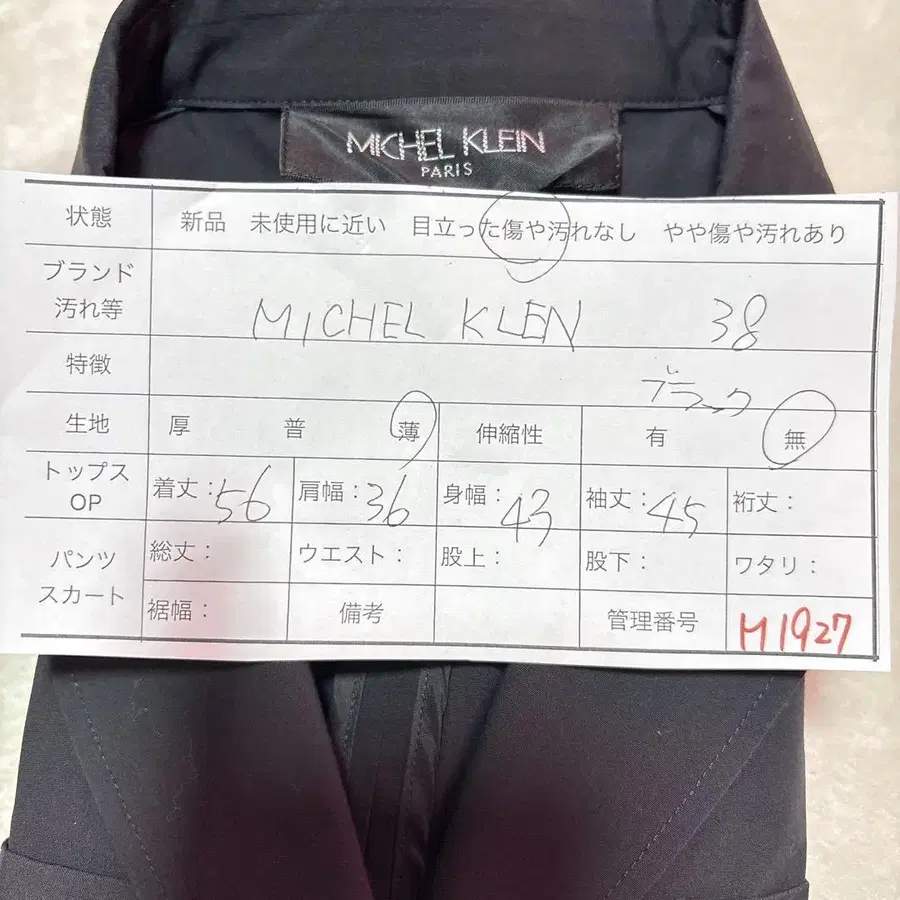 MICHEL KLEIN
PARIS
状態 新品 未使用に近い 目立った傷や汚れなし やや傷や汚れあり
ブランド
汚れ等 MICHEL KLEN 38
特徴 ブラック
生地 厚 普 薄 伸縮性 有 無
トップス
OP 着丈:56 肩幅:36 身幅:43 袖丈:45 裄丈:
パンツ
スカート 総丈: ウエスト: 股上: 股下: ワタリ:
裾幅: 備考 管理番号 M1927